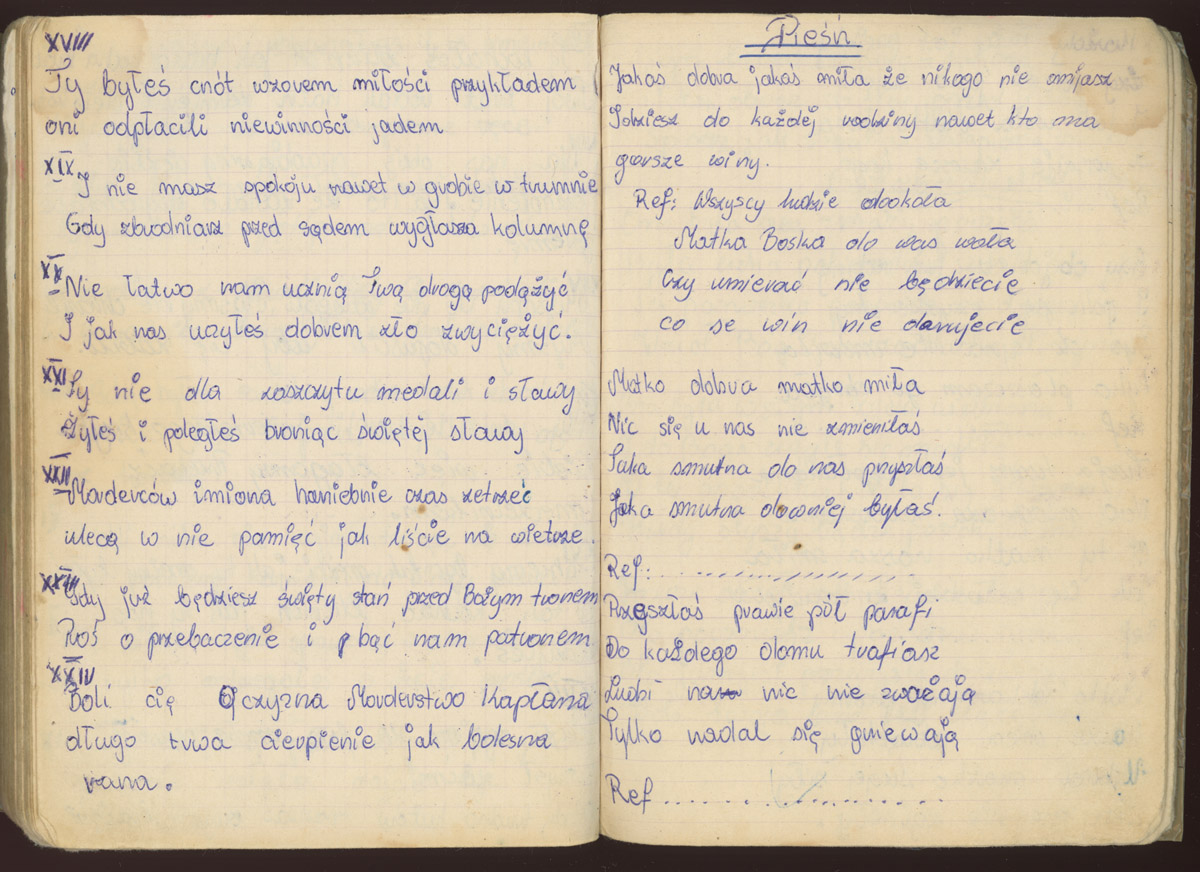 XVIII
Ty byłeś cnót wzorem miłości przykładem
oni odpłacili niewinności jadem
XIX
I nie masz spokoju nawet w grobie w trumnie
Gdy zbrodniarz przed sądem wygłasza kolumnę
XX
Nie łatwo nam ucznią Twą drogą podążyć
I jak nas uczyłeś dobrem zło zwyciężyć.
XXI
Ty nie dla zaszczytu medali i sławy
Żyłeś i poległeś broniąc świętéj sławy
XXII
Morderców imiona haniebnie czas zetrzeć
ulecą w nie pamięć jak liście na wietrze.
XXIII
Gdy już będziesz święty stań przed Bożym tronem
Proś o przebaczenie i bąć nam patronem
XXIV
Boli cię Ojczyzna Morderstwo Kapłana
długo trwa cierpienie jak bolesna
rana.
Pieśń
Jakaś dobra jakaś miła że nikogo nie omijasz
Idziesz do każdéj rodziny nawet kto ma
gorsze winy.
Ref: Wszyscy ludzie dookoła
Matka Boska do was woła
Czy umierać nie będziecie
co se win nie darujecie
Matko dobra matko miła
Nic się u nas nie zmieniłaś
Taka smutna do nas przyszłaś
Jaka smutna dawniej byłaś.
Ref: ........................
Przeszłaś prawie pół parafi
Do każdego domu trafiasz
Ludzi nic nie zważają
Tylko nadal się gniewają
Ref ........................